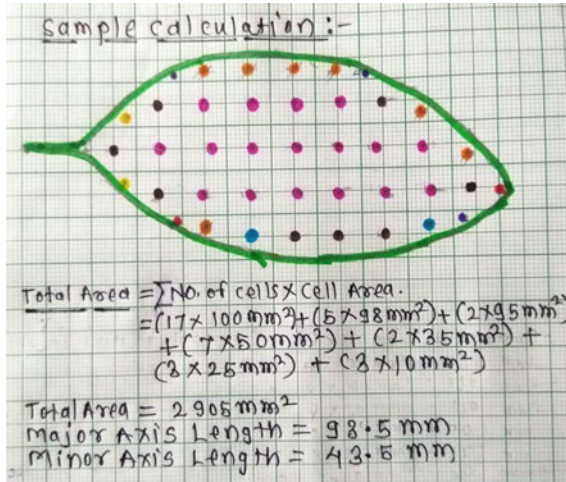 sample calculation :-
Total Area = ΣNo. of cells × Cell Area.
= (17 × 100mm²) + (5 × 98mm²) + (2 × 95mm²)
+ (7 × 50mm²) + (2 × 35mm²) +
(3 × 25mm²) + (3 × 10mm²)
Total Area = 2905 mm²
Major Axis Length = 98.5 mm
Minor Axis Length = 43.5 mm